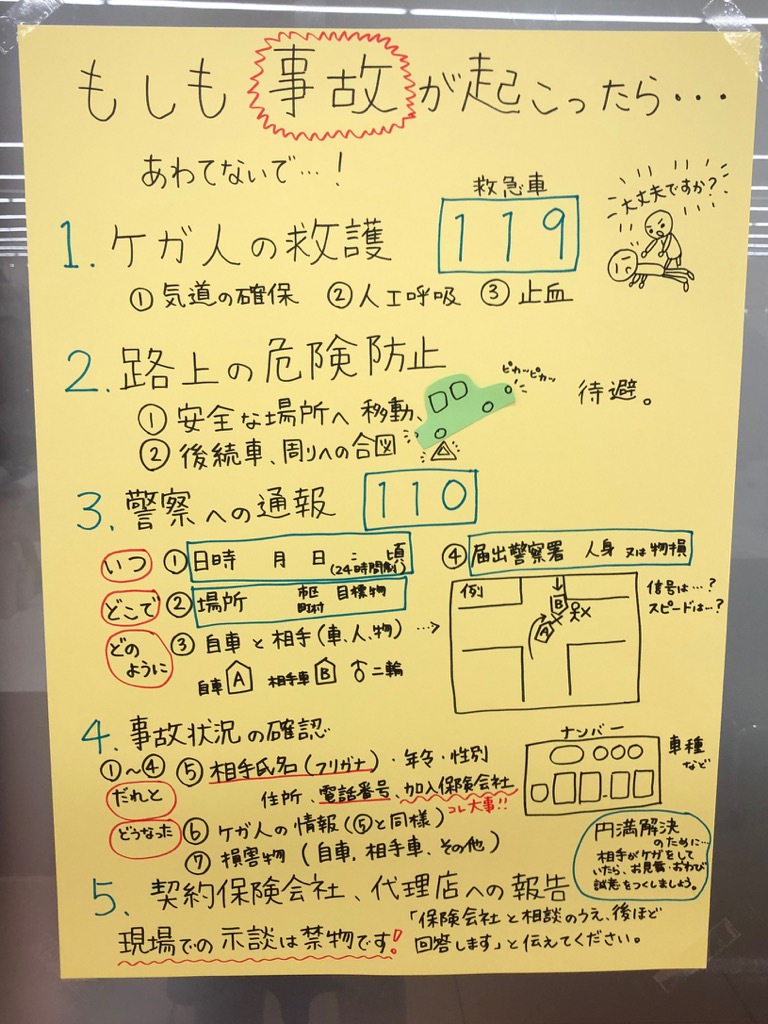 もしも 事故 が起こったら・・・
あわてないで…！
1. ケガ人の救護
救急車
119
大丈夫ですか？
① 気道の確保 ② 人工呼吸 ③ 止血
2. 路上の危険防止
ピカッピカッ
① 安全な場所へ 移動、 待避。
② 後続車、周りへの合図
3. 警察への通報 110
いつ ① 日時 月 日 ： 頃
(24時間制)
どこで ② 場所 市区町村 目標物
どのように ③ 自車 と 相手 (車、人、物) …>
自車 A 相手車 B 二輪
④ 届出警察署 人身 又は 物損
例
B
A
信号は…？
スピードは…？
4. 事故状況の確認
①～④ ⑤ 相手氏名(フリガナ)・年令・性別
だれと 住所、電話番号、加入保険会社
コレ大事!!
どうなった ⑥ ケガ人の情報 (⑤と同様)
⑦ 損害物 (自車、相手車、その他)
ナンバー
車種
など
円満解決
のために…
相手がケガをして
いたら、お見舞・おわび
誠意をつくしましょう。
5. 契約保険会社、代理店への報告
現場での示談は禁物です!
「保険会社と相談のうえ、後ほど
回答します」と伝えてください。